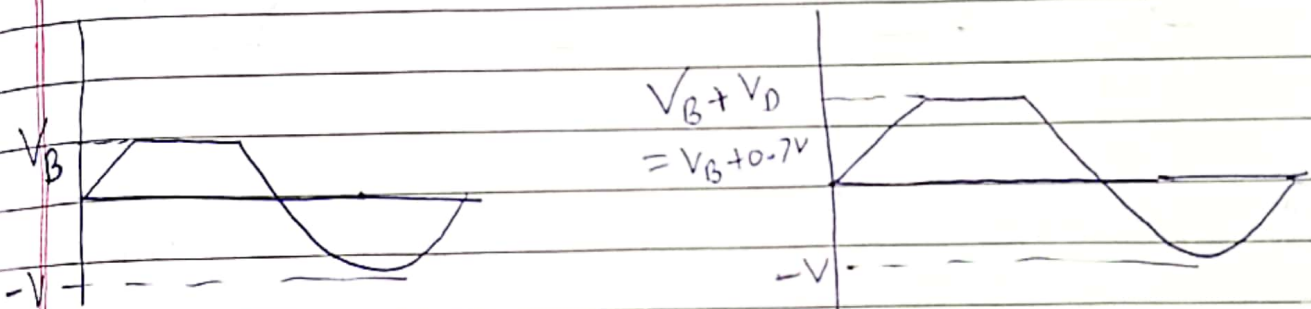 V_B
-V
V_B + V_D
= V_B + 0.7V
-V